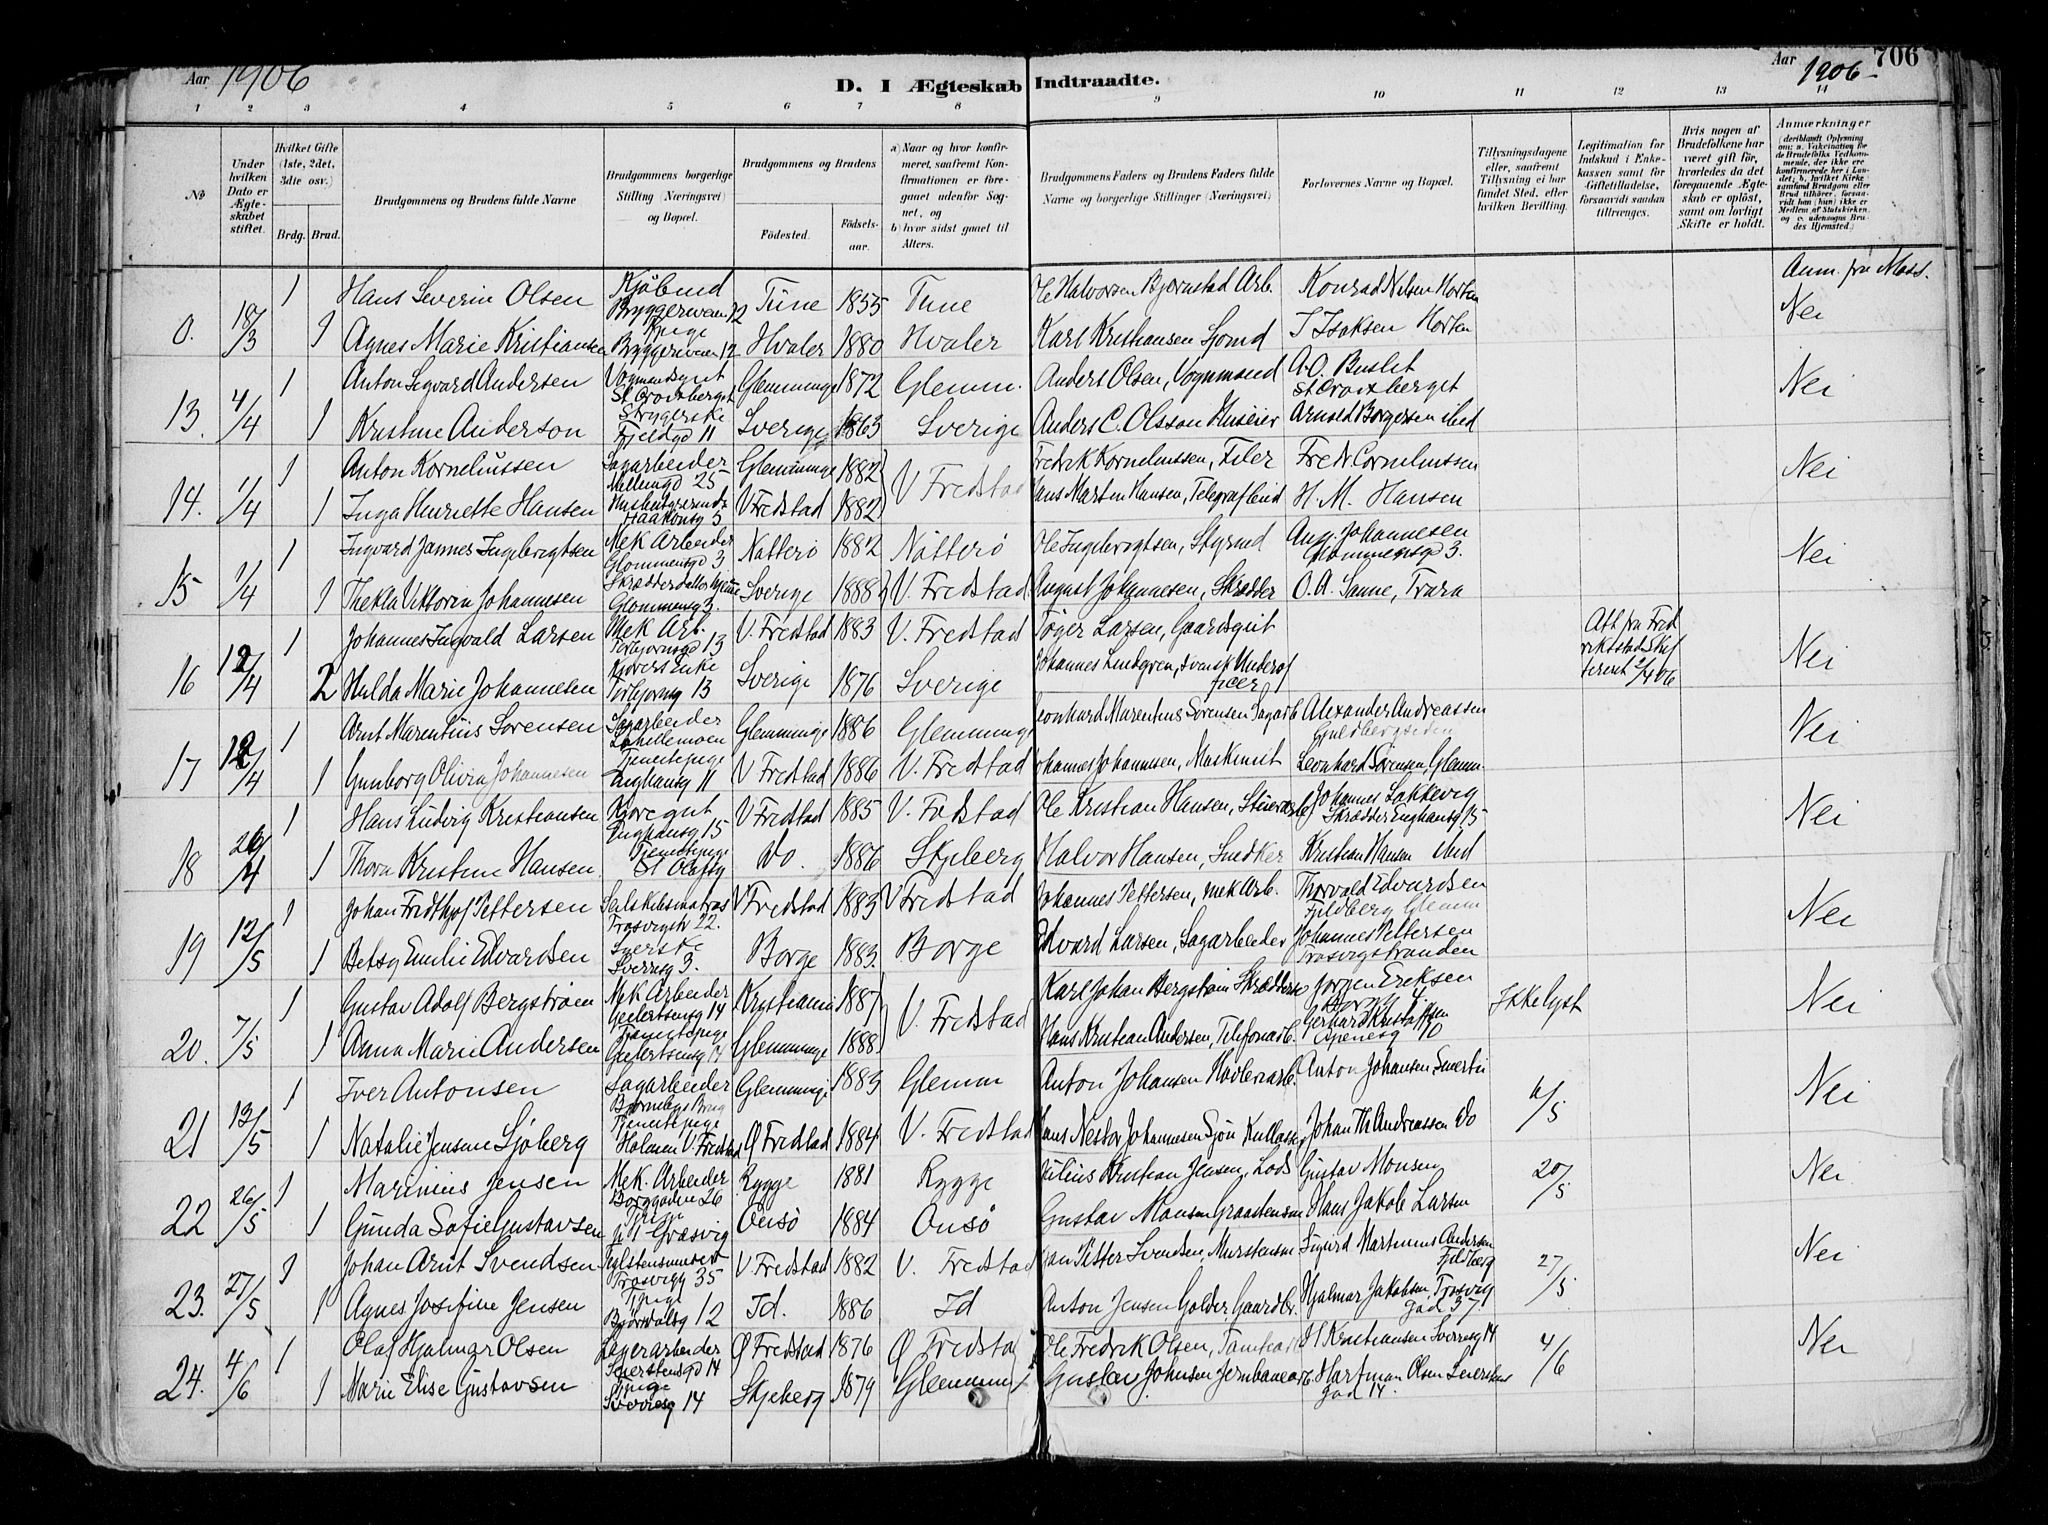 Aar 1906
D. I Ægteskab Indtraadte.
Aar 1906
706
1 2 3 4 5 6 7 8 9 10 11 12 13 14
No
Under hvilken Dato er Ægteskabet stiftet.
Hvilket Gifte (1ste, 2det, 3die osv.)
Brdg. Brud.
Brudgommens og Brudens fulde Navne
Brudgommens borgerlige Stilling (Næringsvei) og Bopæl.
Brudgommens og Brudens
Fødested. Fødselsaar.
a) Naar og hvor konfirmeret, saafremt Konfirmationen er foregaaet udenfor Sognet, og
b) hvor sidst gaaet til Alters.
Brudgommens Faders og Brudens Faders fulde Navne og borgerlige Stillinger (Næringsvei)
Forlovernes Navne og Bopæl.
Tillysningsdagene eller, saafremt Tillysning ei har fundet Sted, efter hvilken Bevilling.
Legitimation for Indskud i Enkekassen samt for Giftetilladelse, forsaavidt saadan tiltrænges.
Hvis nogen af Brudefolkene har været gift før, hvorledes da det foregaaende Ægteskab er opløst, samt om lovligt Skifte er holdt.
Anmærkninger
0. 18/3 1 Hans Severin Olsen Tune 1855 Tune Ole Halvorsen Bjørnstad Arb. Konrad Nilsen Horten Anm. fra Moss.
1 Agnes Marie Kristiansen Bryggeriveien 12 Hvaler 1880 Hvaler Karl Kristiansen Sjømd I Isaksen Horten Nei
13. 4/4 1 Anton Sigvard Andersen Vognmandsgut St Croixberget Glemminge 1872 Glemm. Anders Olsen, Vognmand A.O. Buslet St Croixberget Nei
1 Kristine Anderson Strygerske Fjeldgd 11 Sverige 1863 Sverige Anders C. Olsson Huseier Arnold Borgersen ibid
14. 1/4 1 Anton Kornelíussen Sagarbeider Mellemgd 25 Glemminge 1882 V Fredstad Fredrik Korneliussen, Filer Fredr Corneliussen Nei
1 Inga Henriette Hansen Haakonsg 5 V Fredstad 1882 Hans Marten Hansen, Telegrafbud H. M. Hansen
15 1/4 1 Ingvard James Ingebrigtsen Mek Arbeider Glommensgd 3 Nøtterø 1882 Nøtterø Ole Ingebrigtsen, Styrmd Aug. Johannesen Glommensgd 3. Nei
1 Thekla Viktoria Johannesen Glommensg 3. Sverige 1888 V. Fredstad August Johannesen, Skrædder O. A. Sanne, Trara
16 12/4 1 Johannes Ingvald Larsen Mek Arb. Torbjørnsgd 13 V. Fredstad 1883 V. Fredstad Tøger Larsen, Gaardsgut Att fra Fredrikstad Skifteret 2/4 06 Nei
2 Hulda Marie Johannesen Kjørers Enke Torbjørnsg 13 Sverige 1876 Sverige Johannes Lindgren, svensk Underofficer
17 12/4 1 Arnt Marentius Sørensen Sagarbeider Lahellemoen Glemminge 1886 Glemminge Leonhard Marentius Sørensen Sagarb Alexander Andreassen Nei
1 Gunborg Olivia Johannesen Tjenestepige Enghausg 11 V Fredstad 1886 V. Fredstad Johannes Johannesen, Maskinist Leonhard Sørensen, Glemm.
18 26/4 1 Hans Ludvig Kristiansen Kjøregut Enghausg 15 V Fredstad 1885 V. Fredstad Ole Kristian Hansen, Stuerarb Johannes Løkkevig Skrædder Enghausg 15 Nei
1 Thora Kristine Hansen Tjenestepige St Olafsg Do. 1886 Skjeberg Halvor Hansen, Snedker Kristian Hansen ibid
19 12/5 1 Johan Fridthjof Pettersen Seilskibsmatros Trosvigstr 22. V Fredstad 1883 V Fredstad Johannes Pettersen, Mek Arb. Thorvald Edvardsen Fjeldberg Glemm Nei
1 Betsy Emilie Edvardsen Syerske Sverresg 3. Borge 1883. Borge Edvard Larsen, Sagarbeider Johannes Pettersen Trosvigstranden
20. 7/5 1 Gustav Adolf Bergstrøm Mek Arbeider Geilertsensg 14 Kristiania 1887 V. Fredstad Karl Johan Bergstrøm Skrædder Jørgen Eriksen Ikke lyst Nei
1 Anna Marie Andersen Tjenestepige Geilertsensg 14 Glemminge 1888 Hans Kristian Andersen, Telefonarb. Gerhard Kristoffersen
21 13/5 1 Iver Antonsen Sagarbeider Glemminge 1883 Glemm Anton Johansen Høvleriarb. Anton Johansen 6/5 Nei
1 Natalie Jensine Sjøberg Tjenestepige Holmen V Fredstad Ø Fredstad 1884 V. Fredstad Johan Th Andreassen Do
22 26/5 1 Marinius Jensen Mek. Arbeider Borggaden 26 Rygge 1881 Rygge Julius Kristian Jensen, Lods Gustav Monsen 20/5 Nei
1 Gunda Sofie Gustavsen Pige Græsvig Onsø 1884 Onsø Gustav Monsen Graastensm Hans Jakob Larsen
23. 27/5 1 Johan Arnt Svendsen Trosvigg 35 V Fredstad 1882 V. Fredstad Petter Svendsen, Murstensm Sigurd Martinius Andersen Fjeldberg 27/5 Nei
1 Agnes Josefine Jensen Tj pige Bjørndalsg 12 Id. 1886 Id Anton Jensen Golder, Gaardbr. Hjalmar Jakobsen, Trosvig gad 37.
24. 4/6 1 Olaf Hjalmar Olsen Lagerarbeider Ø Fredstad 1876 Ø Fredstad Ole Fredrik Olsen, H Kristiansen Sverresg 14 4/6 Nei
1 Marie Elise Gustavsen Pige Sverresg 14 Skjeberg 1879 Glemming Gustav Johnsen Jernbanearb Hartman Olsen gad 14.